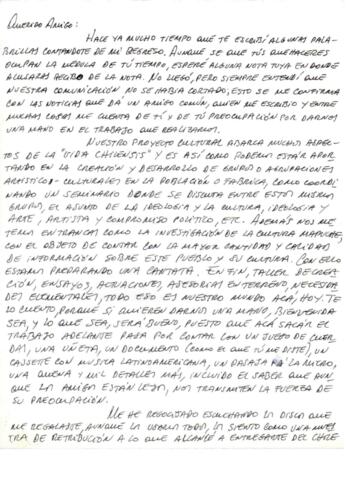 QUERIDO AMIGO:
HACE YA MUCHO TIEMPO QUE TE ESCRIBÍ ALGUNAS PALA-
BRILLAS CONTANDOTE DE MI REGRESO. AUNQUE SE QUE TUS QUEHACERES
OCUPAN LA MEDULA DE TÚ TIEMPO, ESPERÉ ALGUNA NOTA TUYA EN DONDE
ACUSARAS RECIBO DE LA NOTA. NO LLEGÓ, PERO SIEMPRE ENTENDÍ QUE
NUESTRA COMUNICACIÓN NO SE HABÍA CORTADO; ESTO SE ME CONFIRMA
CON LAS NOTICIAS QUE DÁ UN AMIGO COMÚN, QUIEN ME ESCRIBIO Y ENTRE
MUCHAS COSAS ME CUENTA DE TÍ Y DE TÚ PREOCUPACIÓN POR DARNOS
UNA MANO EN EL TRABAJO QUE REALIZAMOS.
NUESTRO PROYECTO CULTURAL ABARCA MUCHOS ASPEC-
TOS DE LA "VIDA CHILENSIS" Y ES ASÍ COMO PODEMOS ESTÁR APOR-
TANDO EN LA CREACIÓN Y DESARROLLO DE GRUPOS O AGRUPACIONES
ARTISTICO-CULTURALES EN LA POBLACIÓN O FABRICA, COMO COORDI-
NANDO UN SEMINARIO DONDE SE DISCUTA ENTRE ESTOS MISMOS
GRUPOS, EL ASUNTO DE LA IDEOLOGIA Y LA CULTURA, IDEOLOGIA Y
ARTE, ARTISTA Y COMPROMISO POLÍTICO, ETC. ADEMÁS NOS ME-
TEMOS EN TRANCAS COMO LA INVESTIGACIÓN DE LA CULTURA MAPUCHE,
CON EL OBJETO DE CONTAR CON LA MAYOR CANTIDAD Y CALIDAD
DE INFORMACIÓN SOBRE ESTE PUEBLO Y SU CULTURA. CON ELLO
ESTAMOS PREPARANDO UNA CANTATA. EN FIN, TALLER DE CREA-
CIÓN, ENSAYOS, ACTUACIONES, ASESORIAS EN TERRENO, NECESIDA-
DES ELEMENTALES, TODO ESO ES NUESTRO MUNDO ACÁ, HOY. TE
LO CUENTO, PORQUE SI QUIEREN DARNOS UNA MANO, BIENVENIDA
SEA, Y LO QUE SEA, SERÁ BUENO, PUESTO QUE ACÁ SACAR EL
TRABAJO ADELANTE PASA POR CONTAR CON UN JUEGO DE CUER-
DAS, UNA UÑETA, UN DOCUMENTO (COMO EL QUE TÚ ME DISTE), UN
CASSETTE CON MUSICA LATINOAMERICANA, UN PASAJE PA' LA MICRO,
UNA QUENA Y MIL DETALLES MAS, INCLUIDO EL SABER QUE AUN-
QUE LOS AMIGOS ESTÁN LEJOS, NOS TRANSMITEN LA FUERZA DE
SU PREOCUPACIÓN.
ME HE REGOCIJADO ESCUCHANDO LOS DISCOS QUE
ME REGALASTE, AUNQUE LOS USEMOS TODOS, LO SIENTO COMO UNA MUES-
TRA DE RETRIBUCIÓN A LO QUE ALCANCÉ A ENTREGARTE DEL CHILE